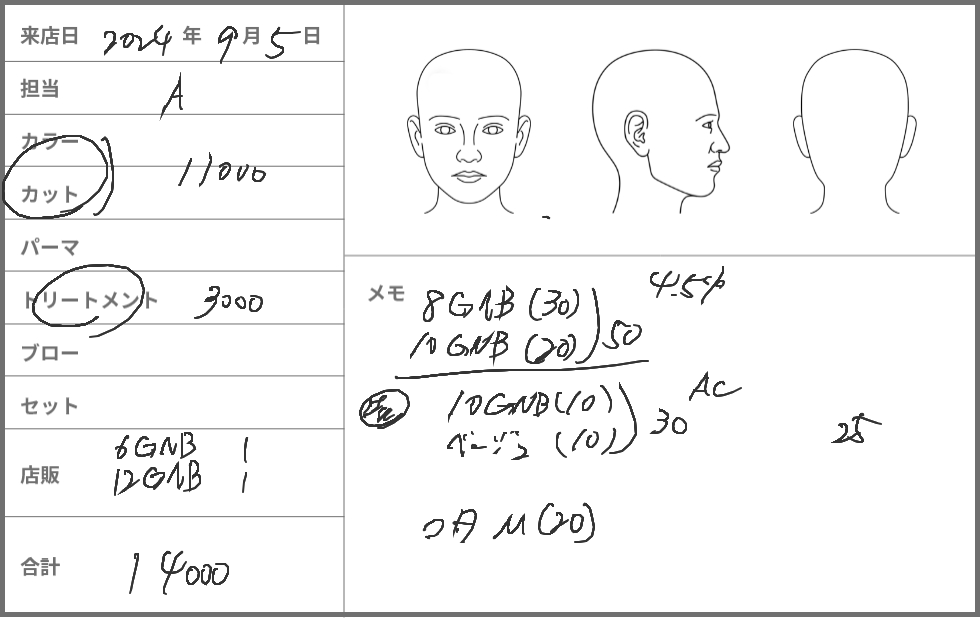 来店日 2024 年 9月 5日
担当 A
カラー
カット 11000
パーマ
トリートメント 3000
ブロー
セット
店販 6GNB 1
12GNB 1
合計 14000
メモ 8GNB (30) 4.5%
10GNB (20) 50
10GNB (10) AC
ベージュ (10) 30
25
M (20)